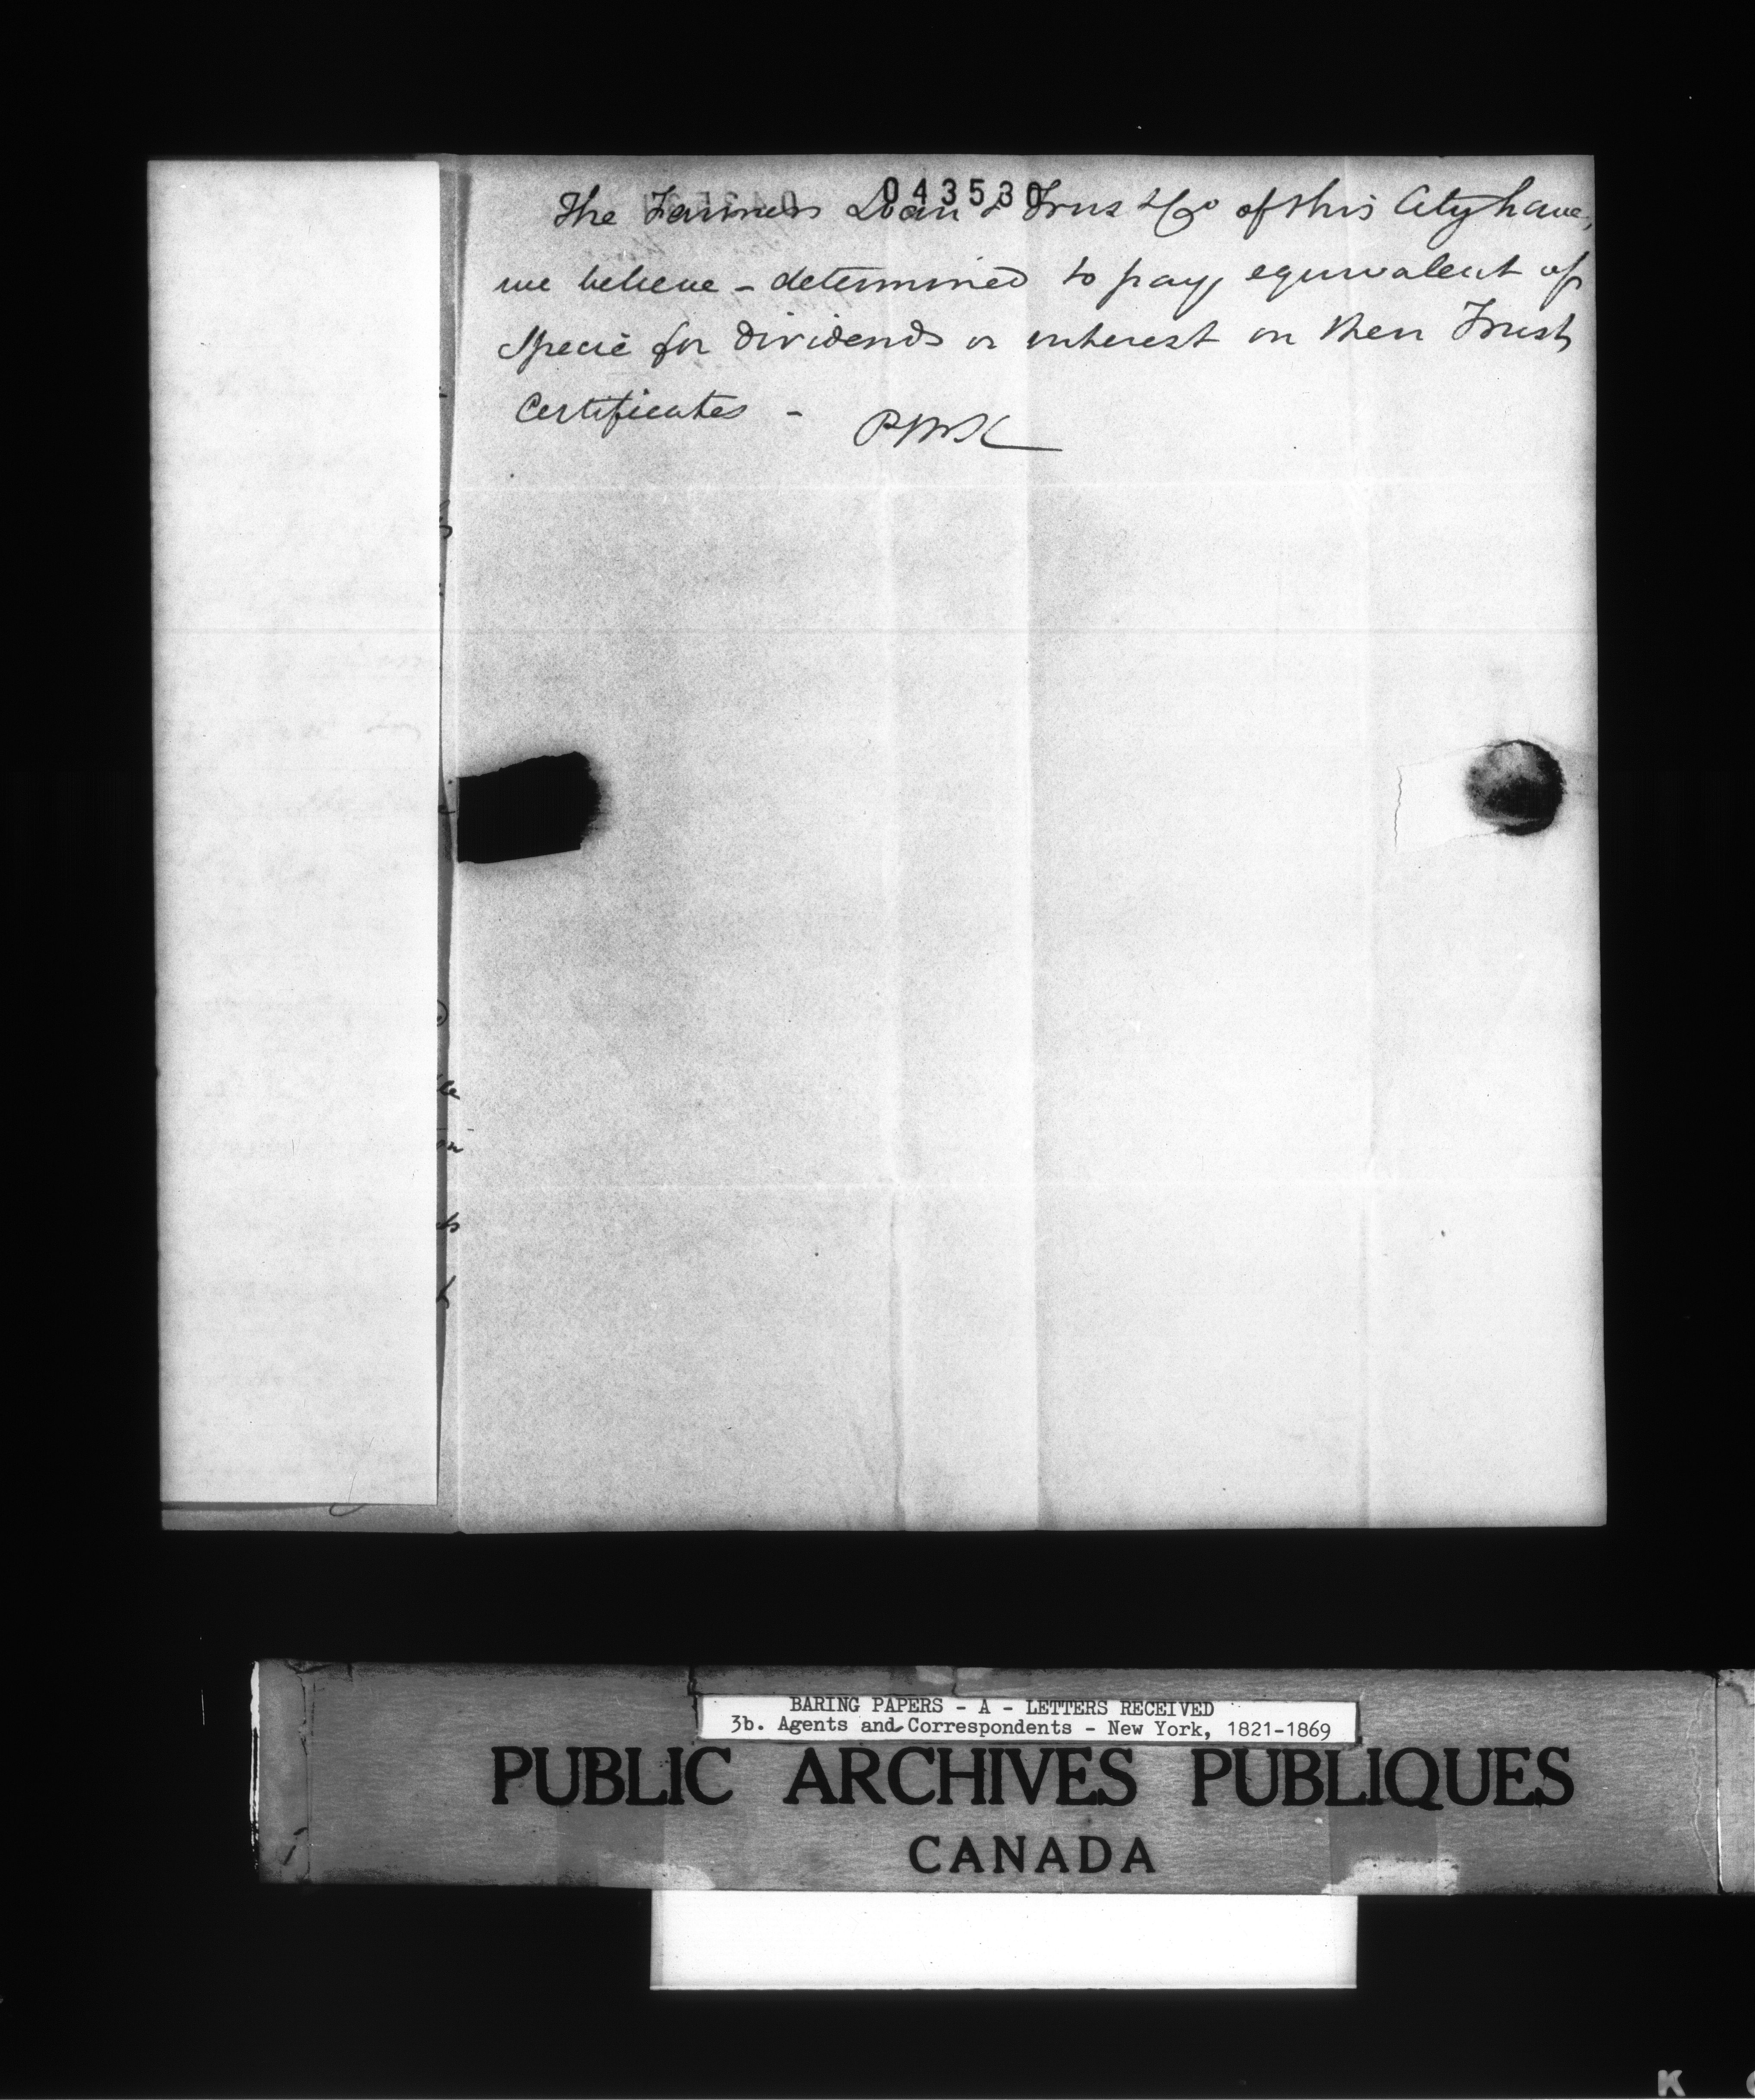 043530
The Farmers Loan & Trust Co of this City have,
we believe - determined to pay equivalent of
Specie for Dividends or interest on their Trust
Certificates -
PWK
BARING PAPERS - A - LETTERS RECEIVED
3b. Agents and Correspondents - New York, 1821-1869
PUBLIC ARCHIVES PUBLIQUES
CANADA
K